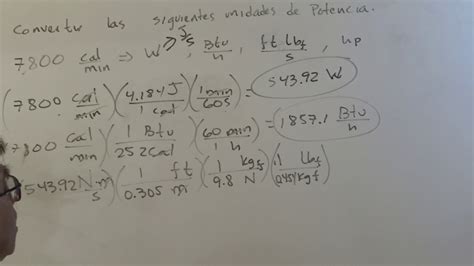 Convertir las siguientes unidades de Potencia.
7,800 cal/min ⇒ W → J/s, Btu/h, ft lbf/s, hp
(7800. cal/min)(4.184J/1 cal)(1min/60s) = 543.92 W
7800 Cal/min)(1 Btu/252Cal)(60 min/1 h) = 1857.1 Btu/h
543.92 N m/s)(1 ft/0.305 m)(1 kgf/9.8 N)(1 lbf/0.454kgf)